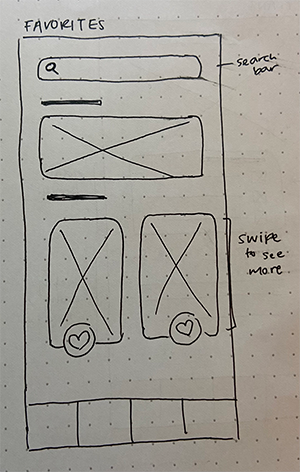 FAVORITES
search
bar
swipe
to see
more